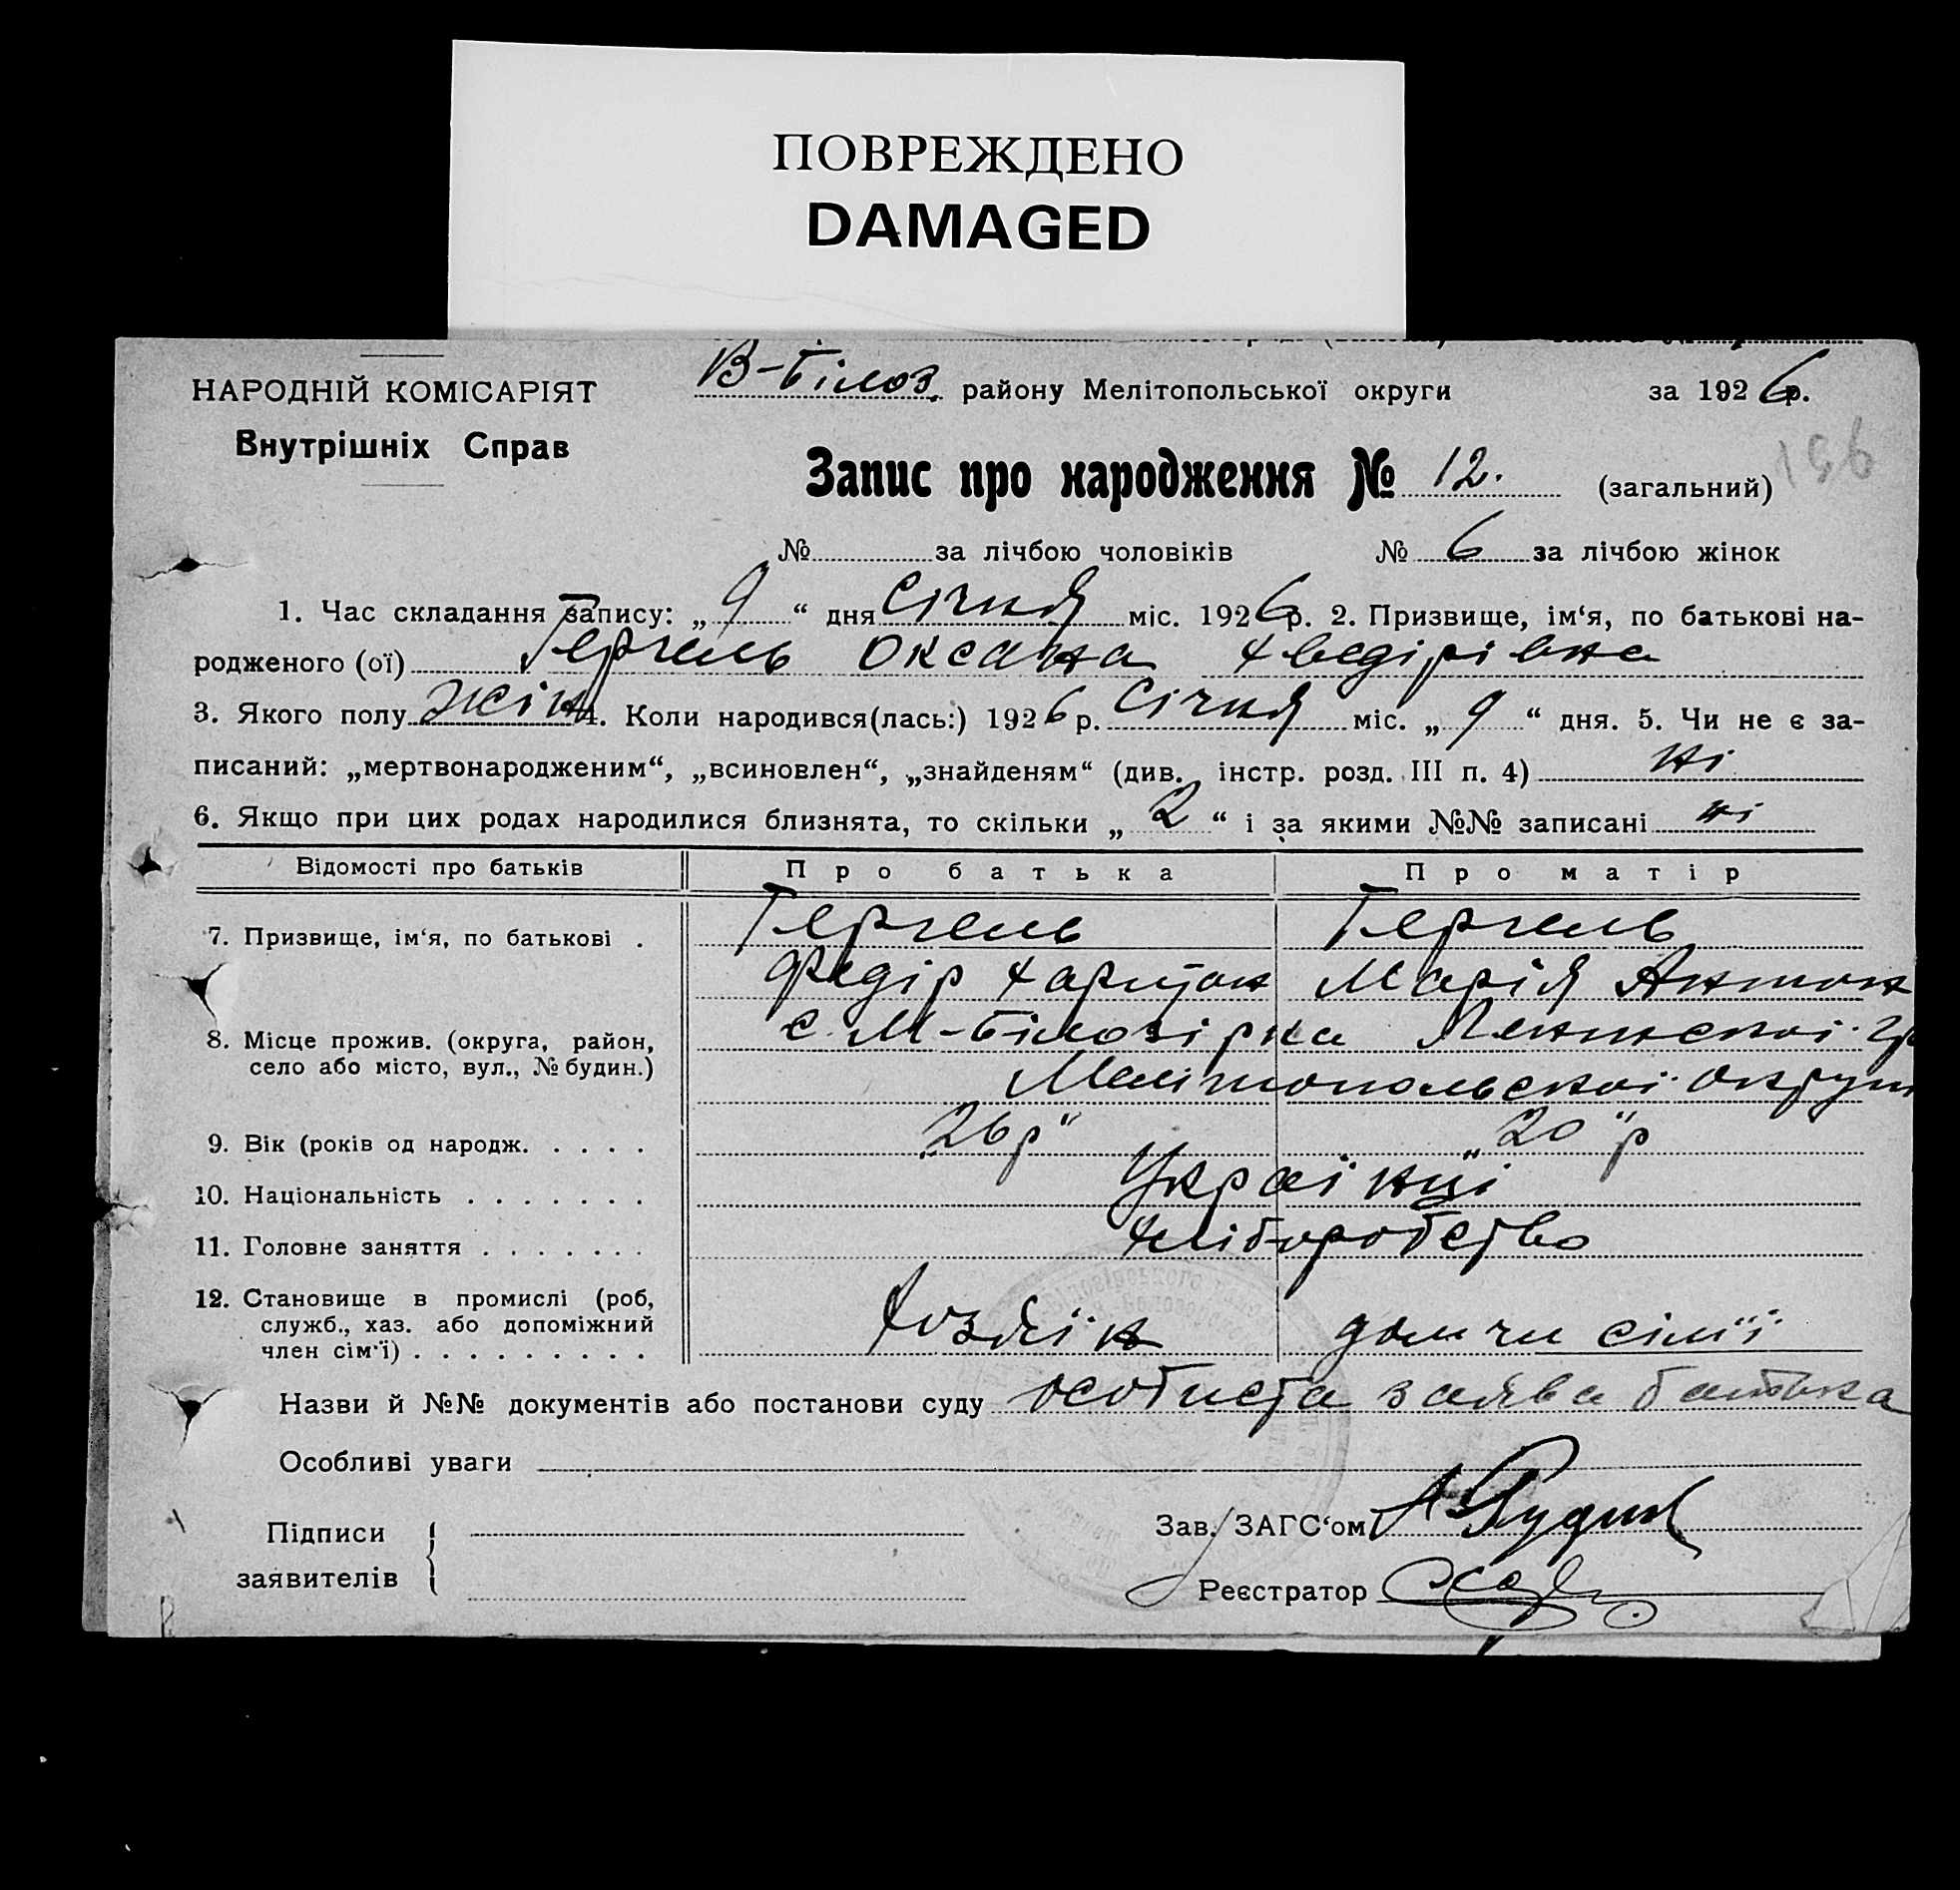 ПОВРЕЖДЕНО
DAMAGED
НАРОДНІЙ КОМІСАРІЯТ
Внутрішніх Справ
В-Білоз. району Мелітопольської округи за 1926 р.
Запис про народження № 12. (загальний) 196
№ за лічбою чоловіків № 6 за лічбою жінок
1. Час складання запису: „ 9 “ дня Січня міс. 1926 р. 2. Призвище, ім‘я, по батькові на-
родженого (ої) Гергель Оксана Хведірівна
3. Якого полу жін 4. Коли народився(лась:) 1926 р. Січня міс. „ 9 “ дня. 5. Чи не є за-
писаний: „мертвонародженим“, „всиновлен“, „знайденям“ (див. інстр. розд. III п. 4) ні
6. Якщо при цих родах народилися близнята, то скільки „ 2 “ і за якими №№ записані ні
Відомості про батьків Про батька Про матір
7. Призвище, ім‘я, по батькові . Гергель Гергель
Федір Харитон Марія Антон
8. Місце прожив. (округа, район, с. М-Білозірка
село або місто, вул., № будин.) Мелітопольскоі округи
9. Вік (років од народж. . . . . „26 р“ „20“ р
10. Національність . . . . . . . Украінці
11. Головне заняття . . . . . . . хліборобство
12. Становище в промислі (роб,
служб., хаз. або допоміжний
член сім‘ї) . . . . . . . . . Хозяін сімї
Назви й №№ документів або постанови суду особиста заява батька
Особливі уваги
Підписи
заявителів
Зав. ЗАГС‘ом
Реєстратор